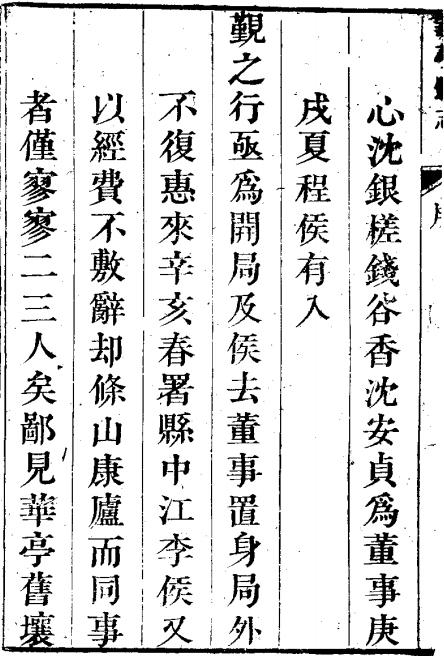 心沈銀槎錢谷香沈安貞爲董事庚
戌夏程侯有入
覲之行亟爲開局及侯去董事置身局外
不復惠來辛亥春署縣中江李侯又
以經費不敷辭却條山康廬而同事
者僅寥寥二三人矣鄙見華亭舊壤